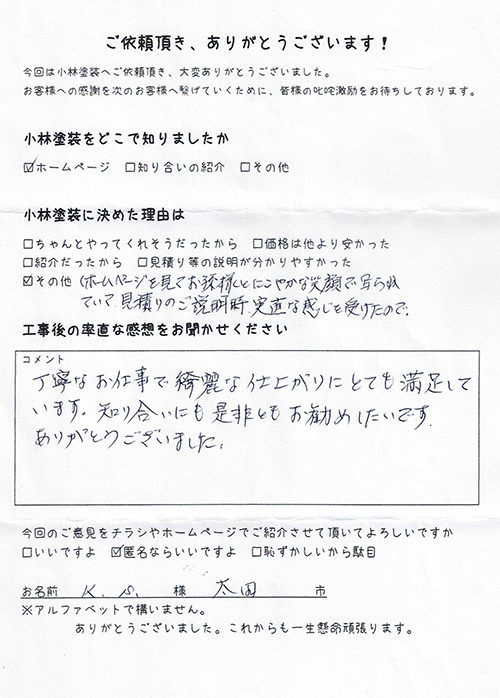 ご依頼頂き、ありがとうございます！
今回は小林塗装へご依頼頂き、大変ありがとうございました。
お客様への感謝を次のお客様へ繋げていくために、皆様の叱咤激励をお待ちしております。
小林塗装をどこで知りましたか
☑ホームページ □知り合いの紹介 □その他
小林塗装に決めた理由は
□ちゃんとやってくれそうだったから □価格は他より安かった
□紹介だったから □見積り等の説明が分かりやすかった
☑その他 (ホームページを見てお孫様とにこやかな笑顔で写られ
ていて、見積りのご説明時、実直な感じを受けたので、
工事後の率直な感想をお聞かせください
コメント
丁寧なお仕事で綺麗な仕上がりにとても満足して
います。知り合いにも是非ともお勧めしたいです。
ありがとうございました。
今回のご意見をチラシやホームページでご紹介させて頂いてよろしいですか
□いいですよ ☑匿名ならいいですよ □恥ずかしいから駄目
お名前 K. S. 様 太田 市
※アルファベットで構いません。
ありがとうございました。これからも一生懸命頑張ります。